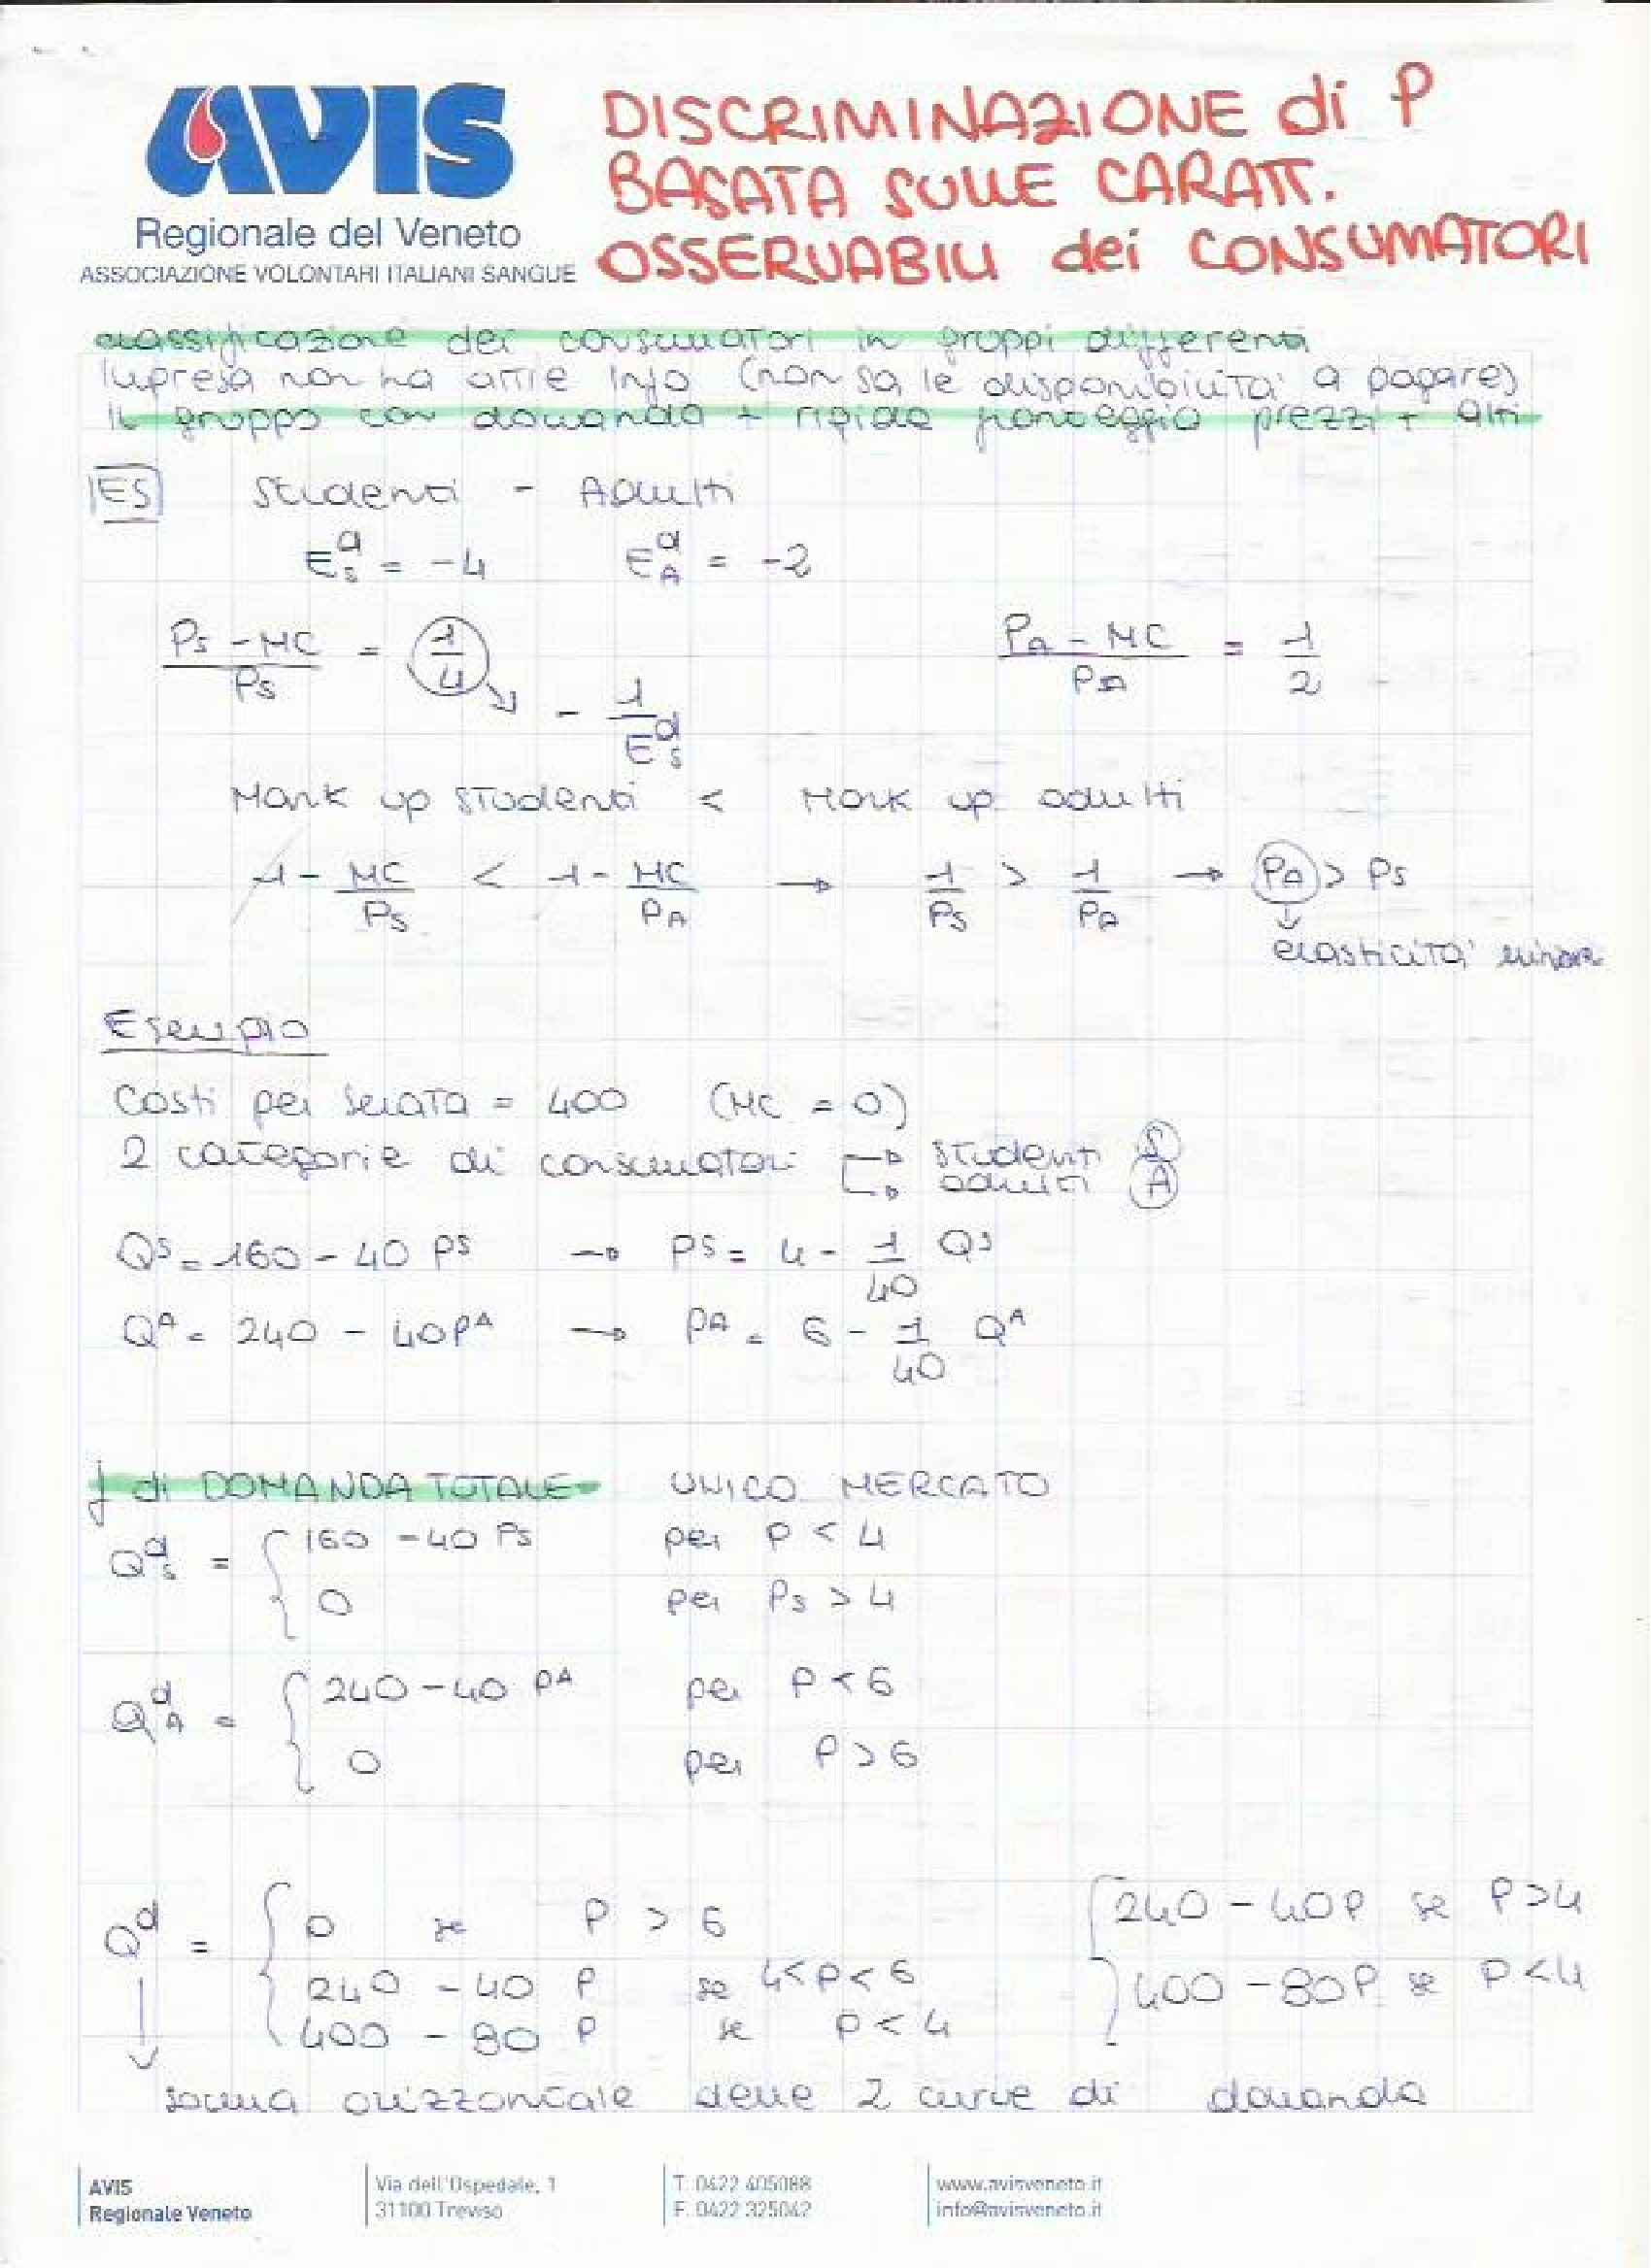 AVIS
Regionale del Veneto
ASSOCIAZIONE VOLONTARI ITALIANI SANGUE
DISCRIMINAZIONE di P
BASATA SULLE CARATT.
OSSERVABILI dei CONSUMATORI
classificazione dei consumatori in gruppi differenti
Impresa non ha altre info (non sa le disponibilità a pagare)
Il gruppo con domanda + rigida fronteggia prezzi + alti
ES Studenti - Adulti
E^d_S = -4 E^d_A = -2
(Ps - MC)/Ps = 1/4 ↘ - 1/E^d_S (PA - MC)/PA = 1/2
Mark up studenti < Mark up adulti
1 - MC/Ps < 1 - MC/PA → 1/Ps > 1/PA → PA > Ps
↓
elasticità minore
Esempio
Costi per serata = 400 (MC = 0)
2 categorie di consumatori → studenti S
→ adulti A
Q^S = 160 - 40 P^S → P^S = 4 - 1/40 Q^S
Q^A = 240 - 40P^A → P^A = 6 - 1/40 Q^A
f di DOMANDA TOTALE UNICO MERCATO
Q^d_S = { 160 - 40 Ps per P < 4
0 per Ps > 4
Q^d_A = { 240 - 40 P^A per P < 6
0 per P > 6
Q^d = { 0 se P > 6
240 - 40 P se 4 < P < 6
400 - 80 P se P < 4
{ 240 - 40P se P > 4
400 - 80P se P < 4
↓
somma orizzontale delle 2 curve di domanda
AVIS
Regionale Veneto
Via dell'Ospedale, 1
31100 Treviso
T. 0422 405088
F. 0422 325042
www.avisveneto.it
info@avisveneto.it